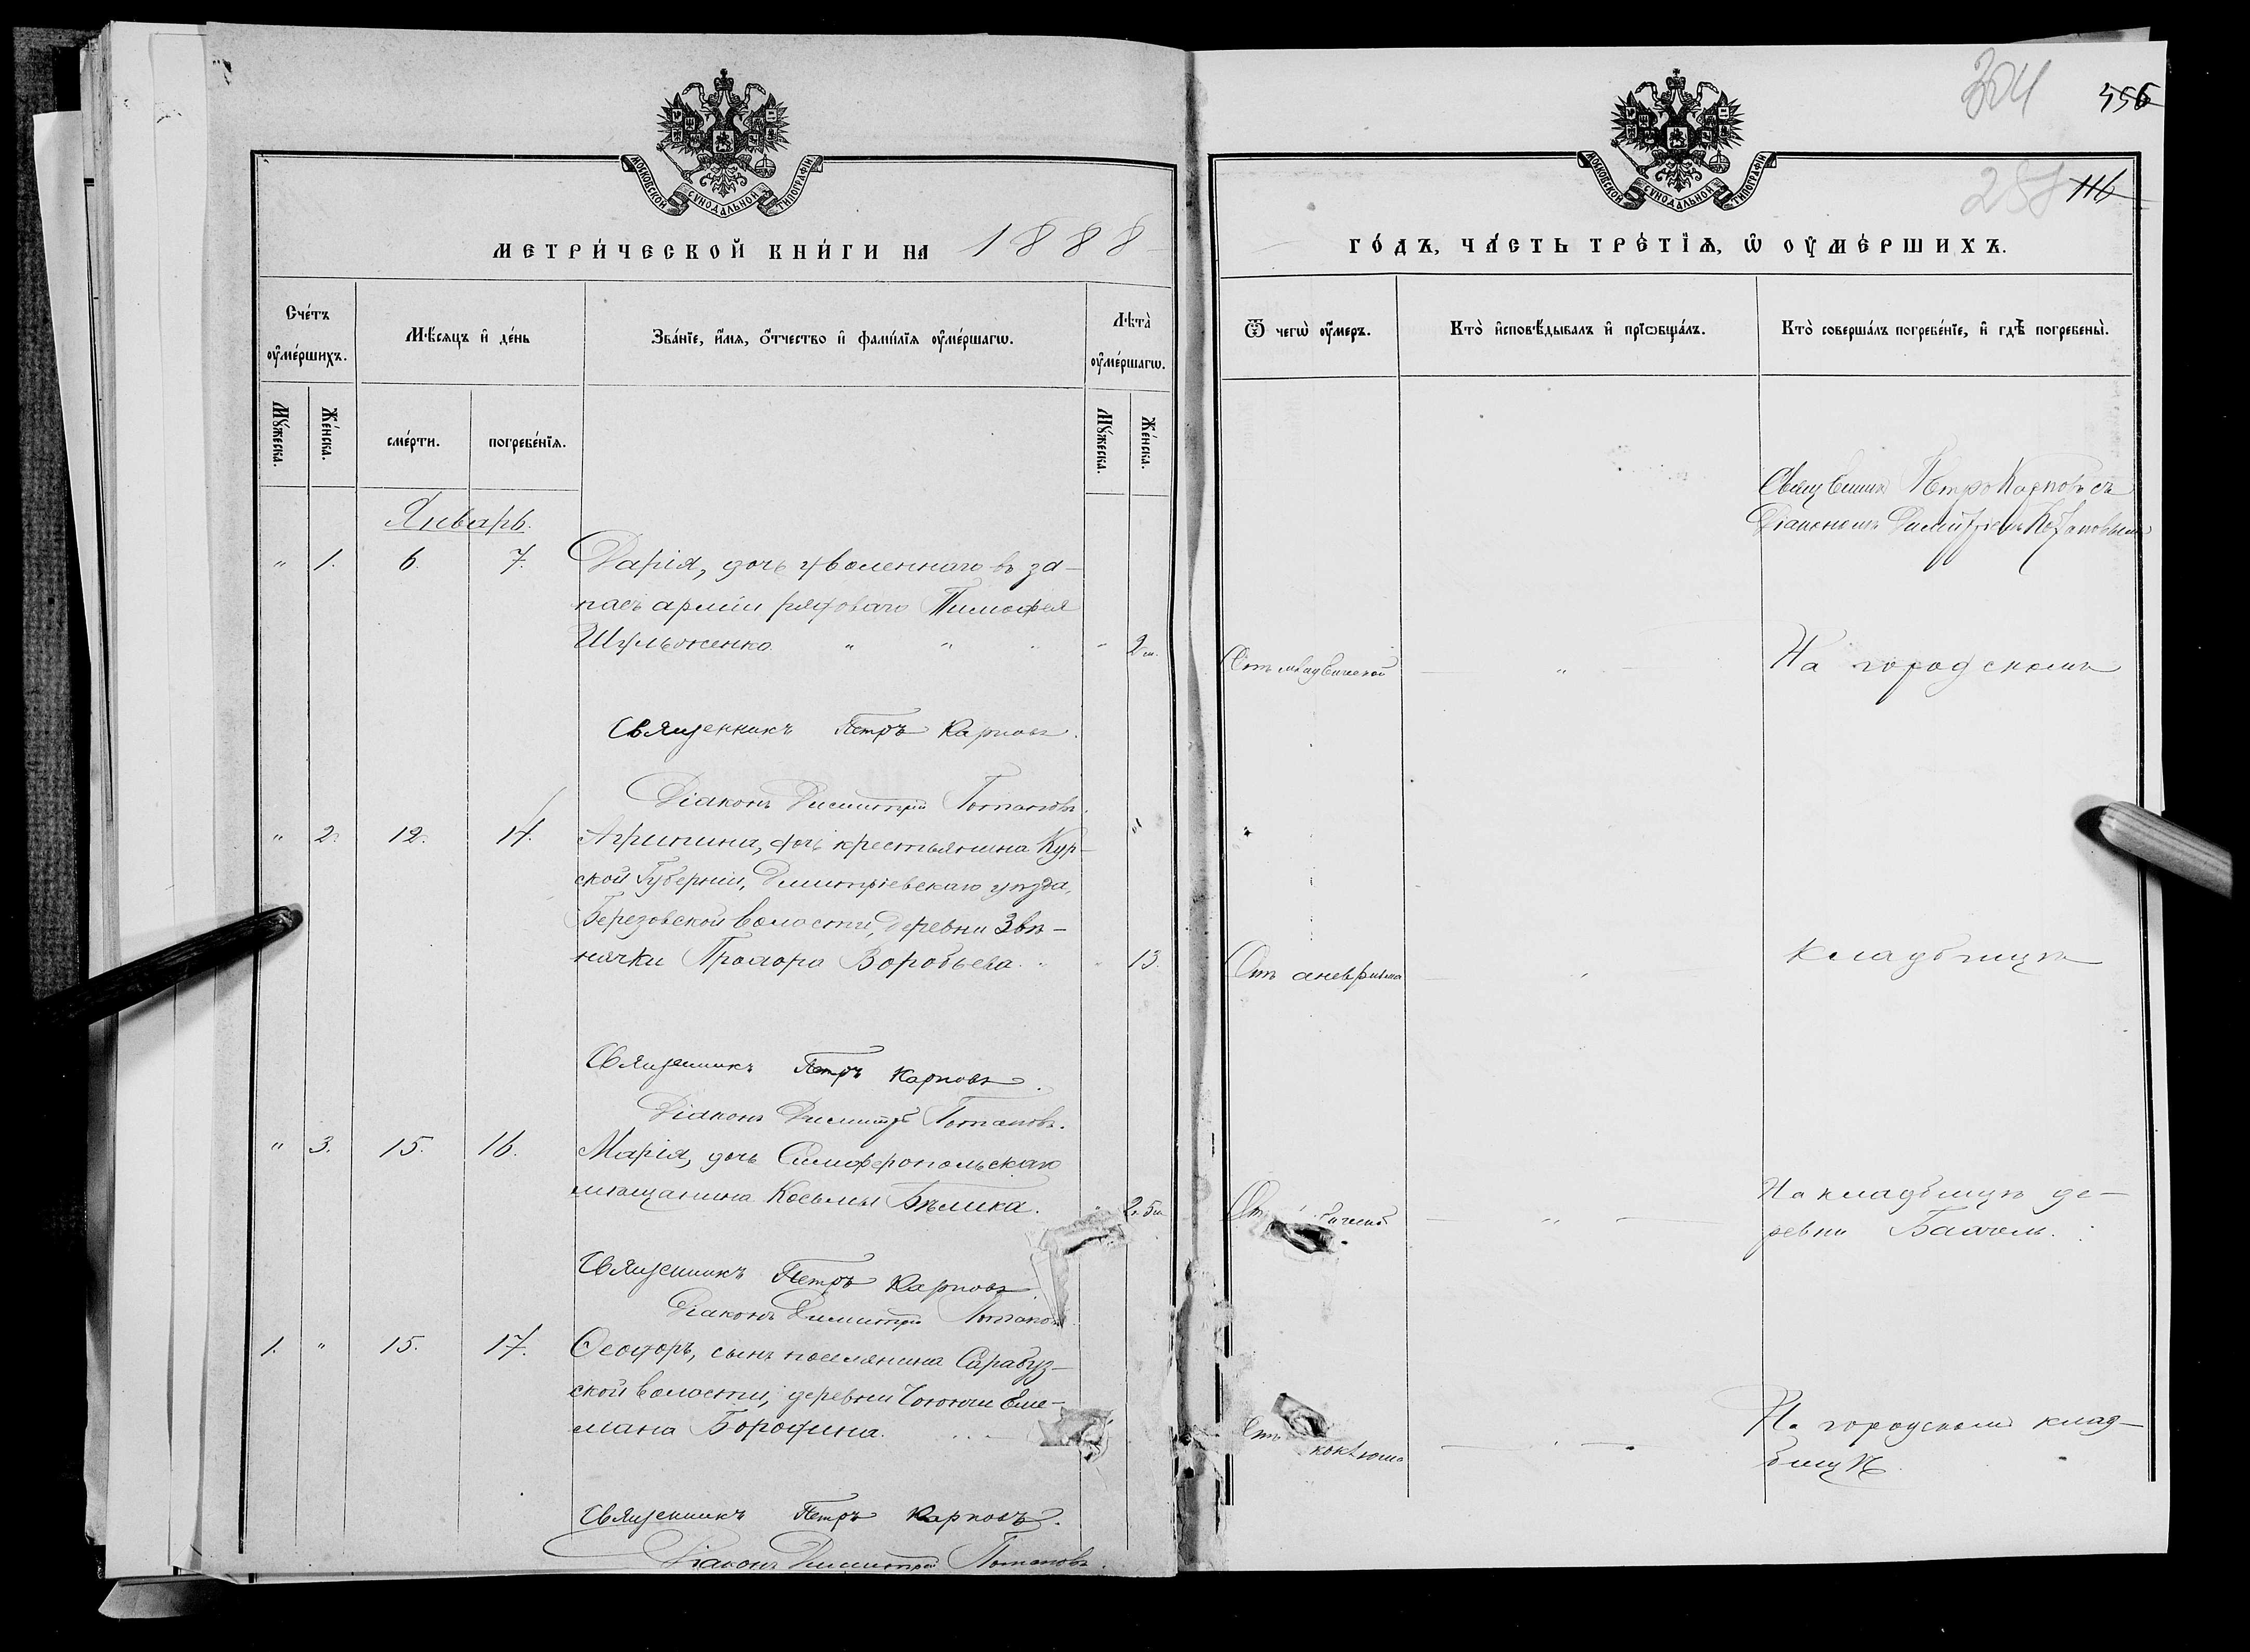 МОСКОВСКОЙ СѴНОДАЛЬНОЙ ТИПОГРАФІИ
МЕТРИ́ЧЕСКОЙ КНИ́ГИ НА 1888
Сче́тъ ᲂу҆ме́ршихъ.
Мѣ́сяцъ и҆ де́нь
Зва́нїе, и҆́мя, ѻ҆́тчество и҆ фами́лїя ᲂу҆ме́ршагѡ.
Лѣта̀ ᲂу҆ме́ршагѡ.
Мꙋ́жеска.
Же́нска.
сме́рти.
погребе́нїя.
Мꙋ́жеска.
Же́нска.
Январь.
" 1. 6. 7. Дарія, дочь уволеннаго въ за-
пасъ арміи рядоваго Тимофея
Шульженко. " " " " 2 м.
Священникъ Петръ Карповъ.
Діаконъ Димитрій Потаповъ.
" 2. 12. 14. Агрипина, дочь крестьянина Кур-
ской Губерніи, Дмитріевскаго уѣзда,
Березовской волости, деревни Звѣ-
нячки Прохора Воробьева. " 13.
Священникъ Петръ Карповъ.
Діаконъ Димитрій Потаповъ.
" 3. 15. 16. Марія, дочь Симферопольскаго
мѣщанина Косьмы Бѣлика. "
Священникъ Петръ Карповъ.
Діаконъ Димитрій Потаповъ
1. " 15. 17. Ѳеодоръ, сынъ поселянина Сарабуз-
ской волости, деревни Еме-
лiана Бородина.
Священникъ Петръ Карповъ.
Діаконъ Димитрій Потаповъ.
304 556
МОСКОВСКОЙ СѴНОДАЛЬНОЙ ТИПОГРАФІИ
116
ГО́ДЪ, ЧА́СТЬ ТРЕ́ТЇѦ, Ѡ҆ ОУ҆МЕ́РШИХЪ.
Ѿ чегѡ̀ ᲂу҆́меръ.
Кто̀ и҆сповѣ́дывалъ и҆ прїѡбща́лъ.
Кто̀ соверша́лъ погребе́нїе, и҆ гдѣ̀ погребены̀.
Священникъ Петръ Карповъ съ
Діакономъ Димитріемъ Потаповымъ
Отъ младенческой " На городскомъ
Отъ аневризма " кладбищѣ
На кладбищѣ де-
ревни
На городскомъ клад-
бищѣ.
Отъ коклюша